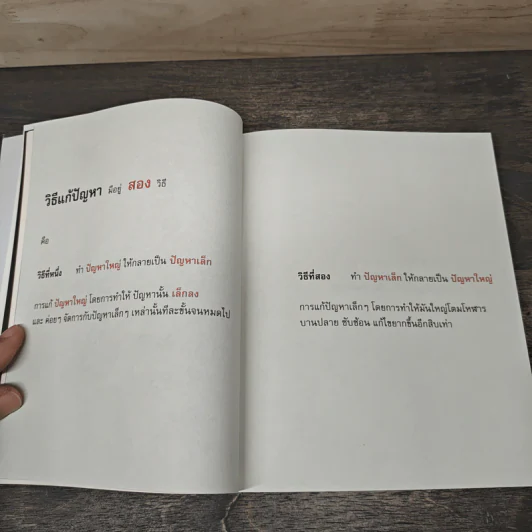 วิธีแก้ปัญหา มีอยู่ สอง วิธี
คือ
วิธีที่หนึ่ง ทำ ปัญหาใหญ่ ให้กลายเป็น ปัญหาเล็ก
การแก้ ปัญหาใหญ่ โดยการทำให้ ปัญหานั้น เล็กลง
และ ค่อยๆ จัดการกับปัญหาเล็กๆ เหล่านั้นทีละชั้นจนหมดไป
วิธีที่สอง ทำ ปัญหาเล็ก ให้กลายเป็น ปัญหาใหญ่
การแก้ปัญหาเล็กๆ โดยการทำให้มันใหญ่โตมโหฬาร
บานปลาย ซับซ้อน แก้ไขยากขึ้นอีกสิบเท่า